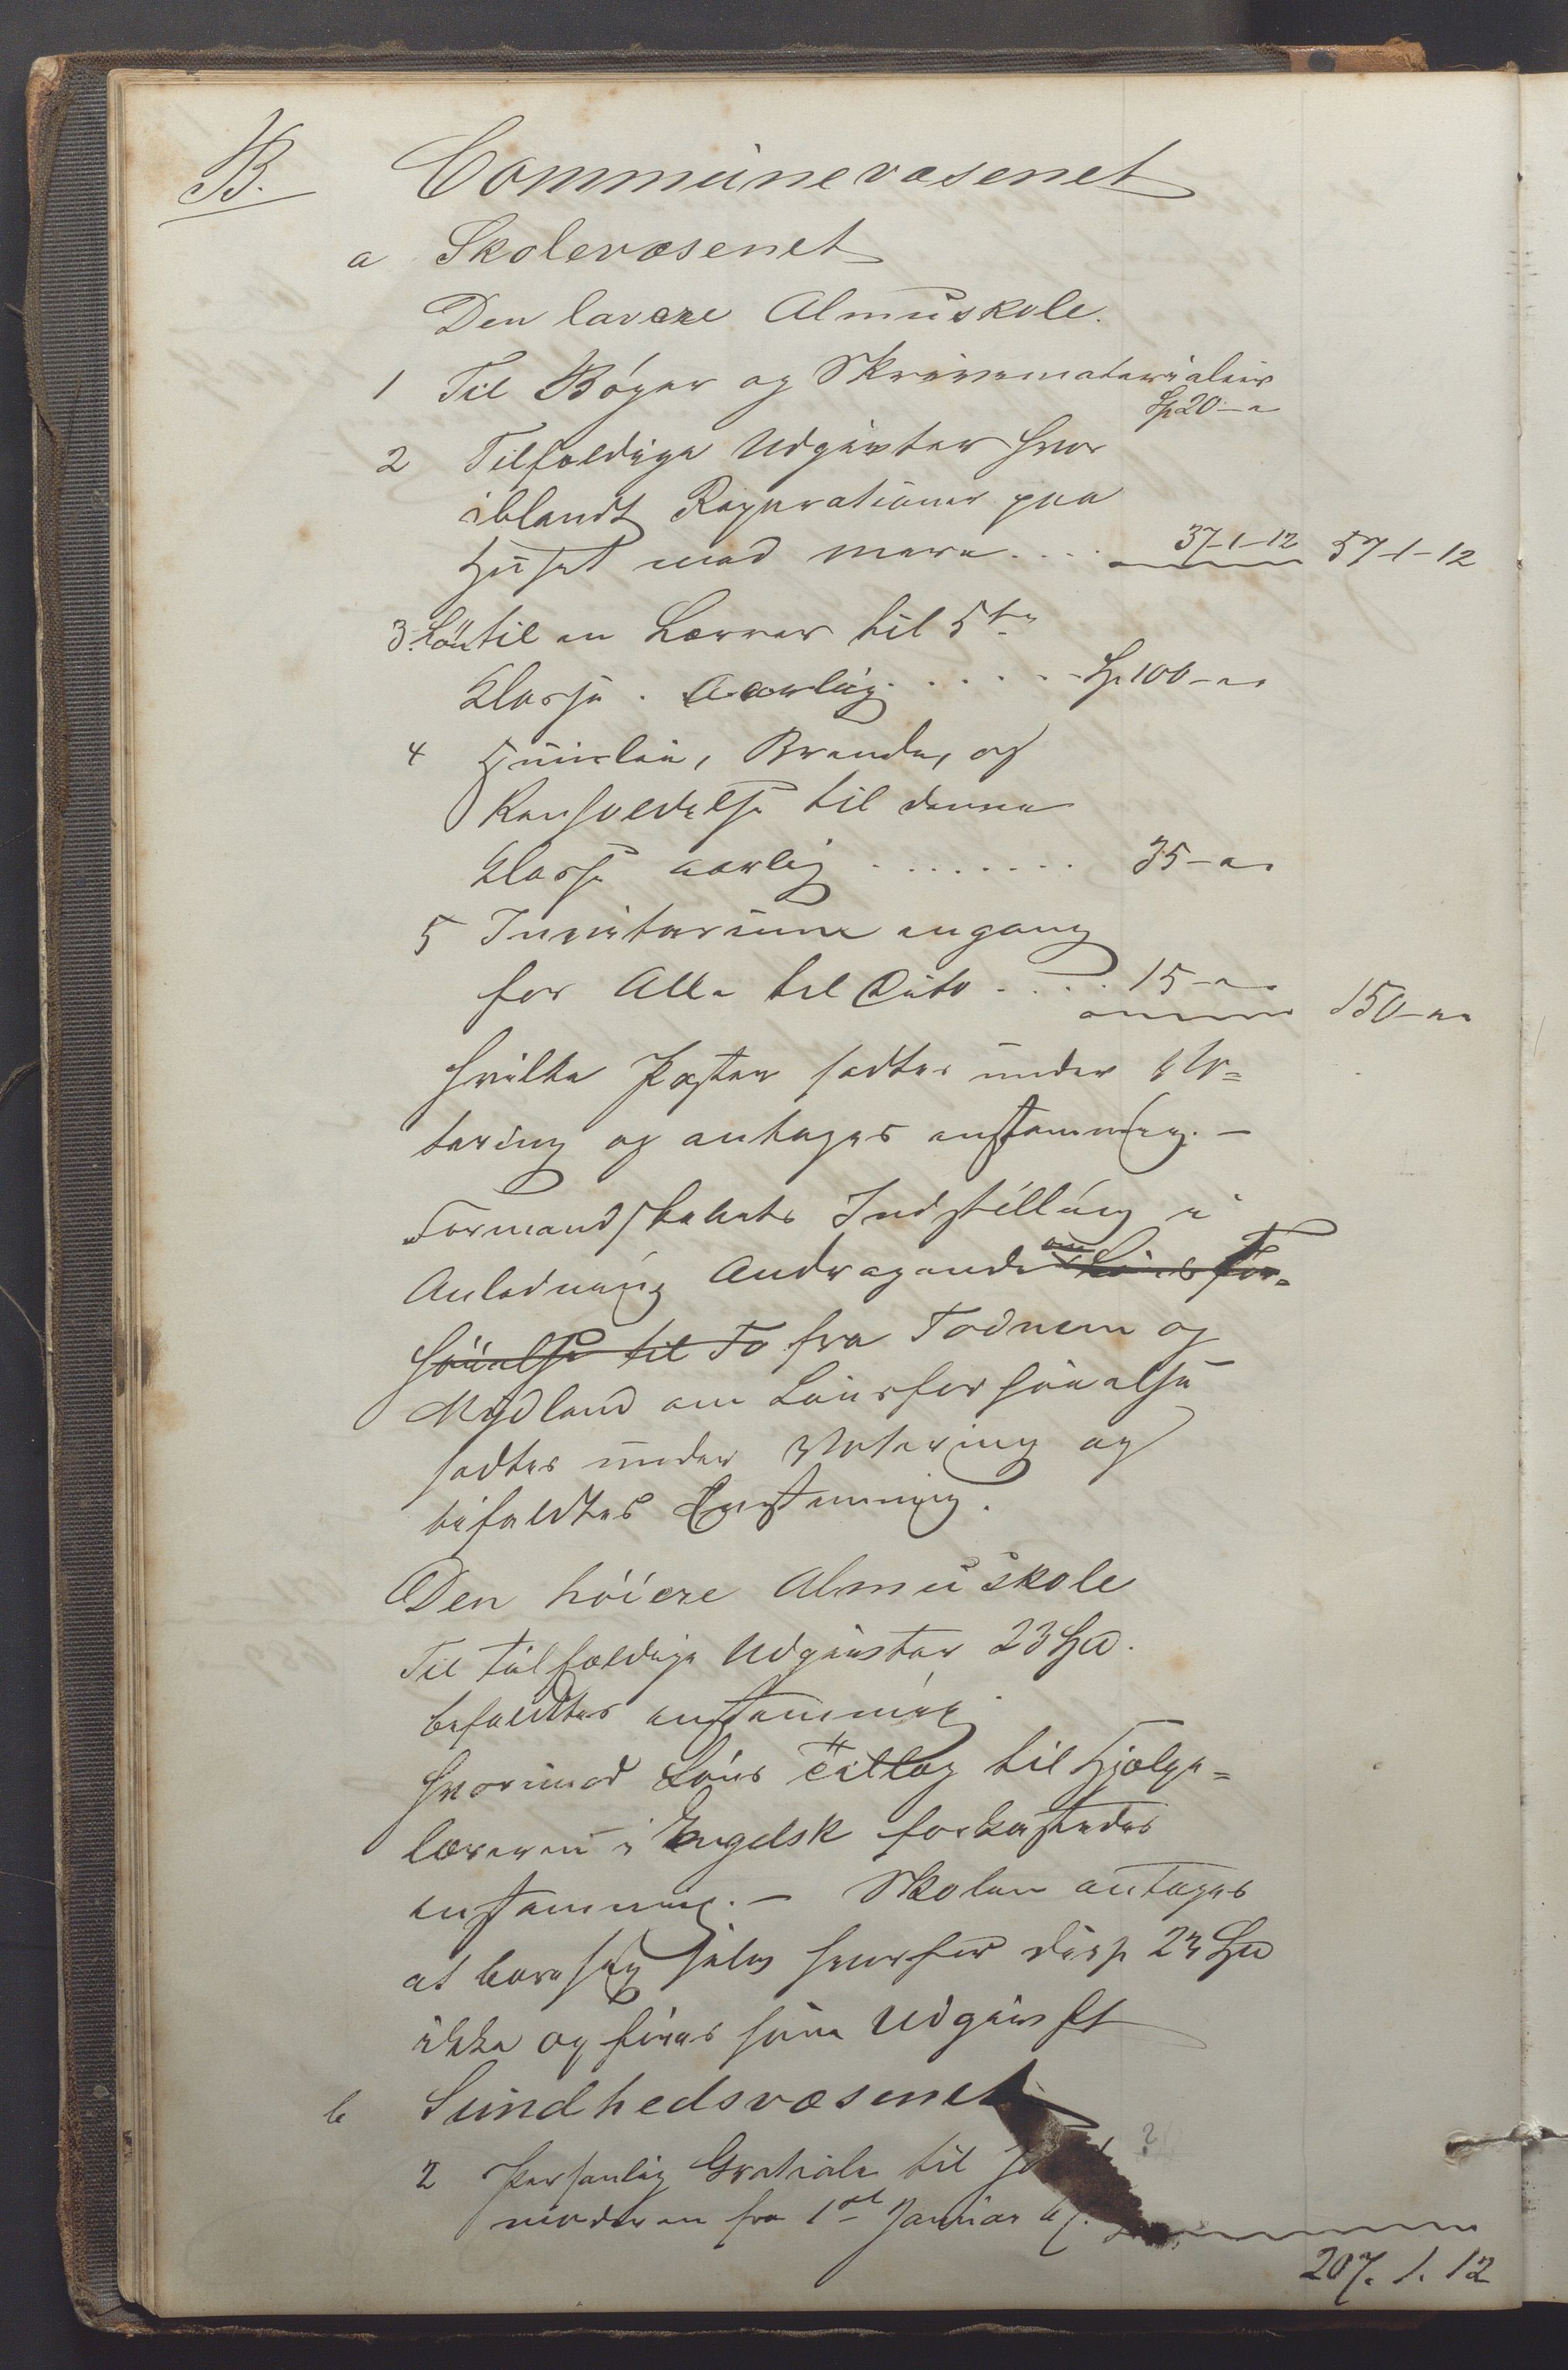 B. Communevæsenet
a Skolevæsenet
Den lavere Almuskole.
1 Til Bøger og Skrivematerialier
Sp 20 - "
2 Tilfældige Udgivter hvor
iblandt Reparationer paa
Huset med mere .... 37-1-12 57-1-12
3. Løn til en Lærer til 5te
Klasse. Aarlig ...... Sp. 100 - " "
4 Huusleie, Brænde, og
Renholdelse til denne
Klasse aarlig ........ 35 - " "
5 Inventarium engang
for Alle til Dito .... 15 - " " 150 - " "
hvilke Poster sadtes under Vo=
tering og antoges enstemmig. -
Formandskabets Indstilling i
Anledning Andragende om Løns for=
høielse til To fra Todnem og
Mydland om Lønsforhøielse
sadtes under Votering og
bifaldtes Enstemmig.
Den høiere Almuskole
Til tilfældige Udgivter 23 Spd.
bifaldtes enstemmig
hvorimod Løns Tillæg til Hjælpe=
læreren i Engelsk forkastedes
enstemmig. - Skolen antages
at bære sig selv hvorfor disse 23 Spd
ikke opføres som Udgivft
b Sundhedsvæsenet
2 Personlig Gratiale til Jo
moderen fra 1st Januar
207. 1. 12